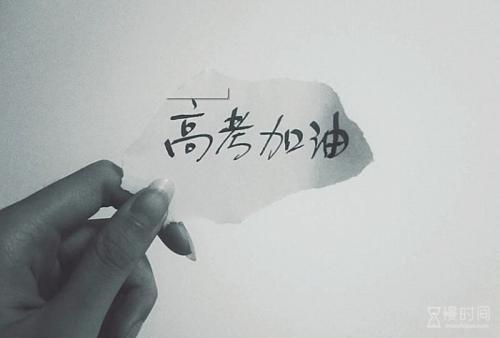 高考加油
慢时间